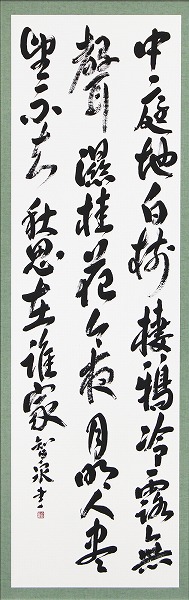 中庭地白樹棲鴉冷露無
聲濕桂花今夜月明人盡
望不知秋思在誰家 智泉書